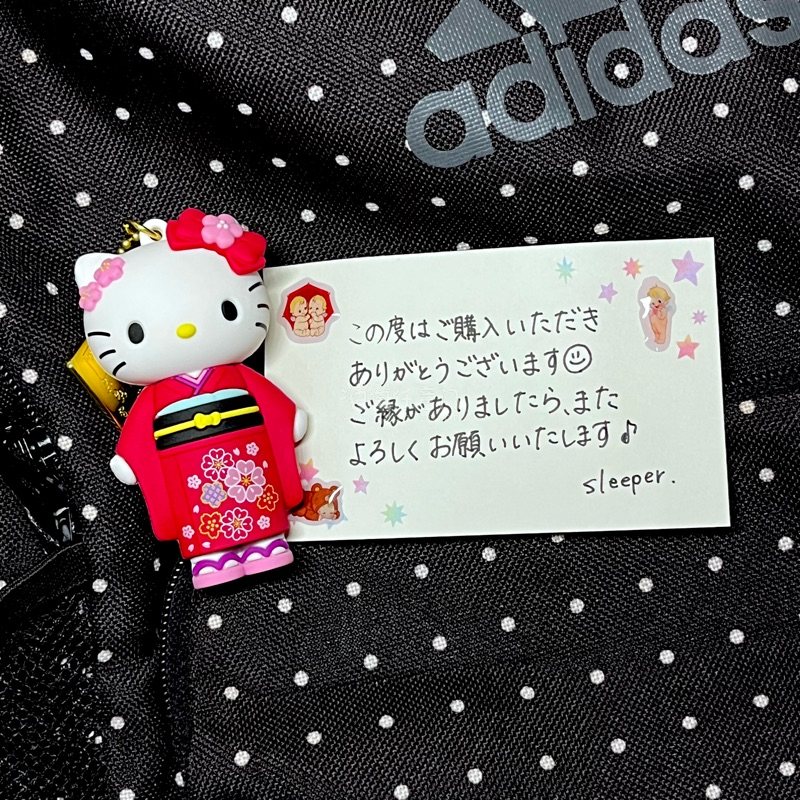 adidas
この度はご購入いただき
ありがとうございます☺
ご縁がありましたら、また
よろしくお願いいたします♪
sleeper.